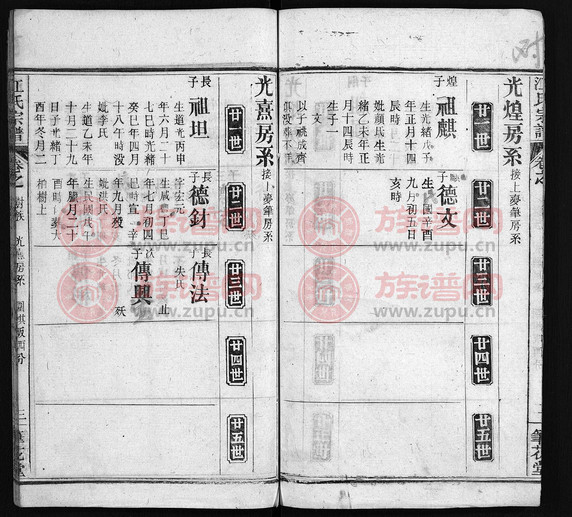 光煌房系 接上夢筆房系
廿一世
廿二世
廿三世
廿四世
廿五世
煌子 祖麒
生光緒戊子
年正月十四
辰時
妣顏氏生光
緒乙未年正
月十四辰時
生子一
文
以子祧成齊
子德文
生民國辛酉
九月初五日
亥時
光熹房系 接上夢筆房系
廿一世
廿二世
廿三世
廿四世
廿五世
長子 祖坦
生道光丙申
年六月二十
七巳時光緒
癸巳年四月
十八午時沒
妣李氏
生道乙未年
十月二十九
日子光緒丁
酉年冬月二
長子 德釗
字宏元
年七月初四
巳時宣 辛
年九月殁
妣洪氏
生民國戊午
年臘月二十
柏樹上
長子 傳法
失氏
次子 傳興
殁
江氏宗譜
光熹房系
三
筆花堂
江氏宗譜
筆花堂
族谱网
www.zupu.cn